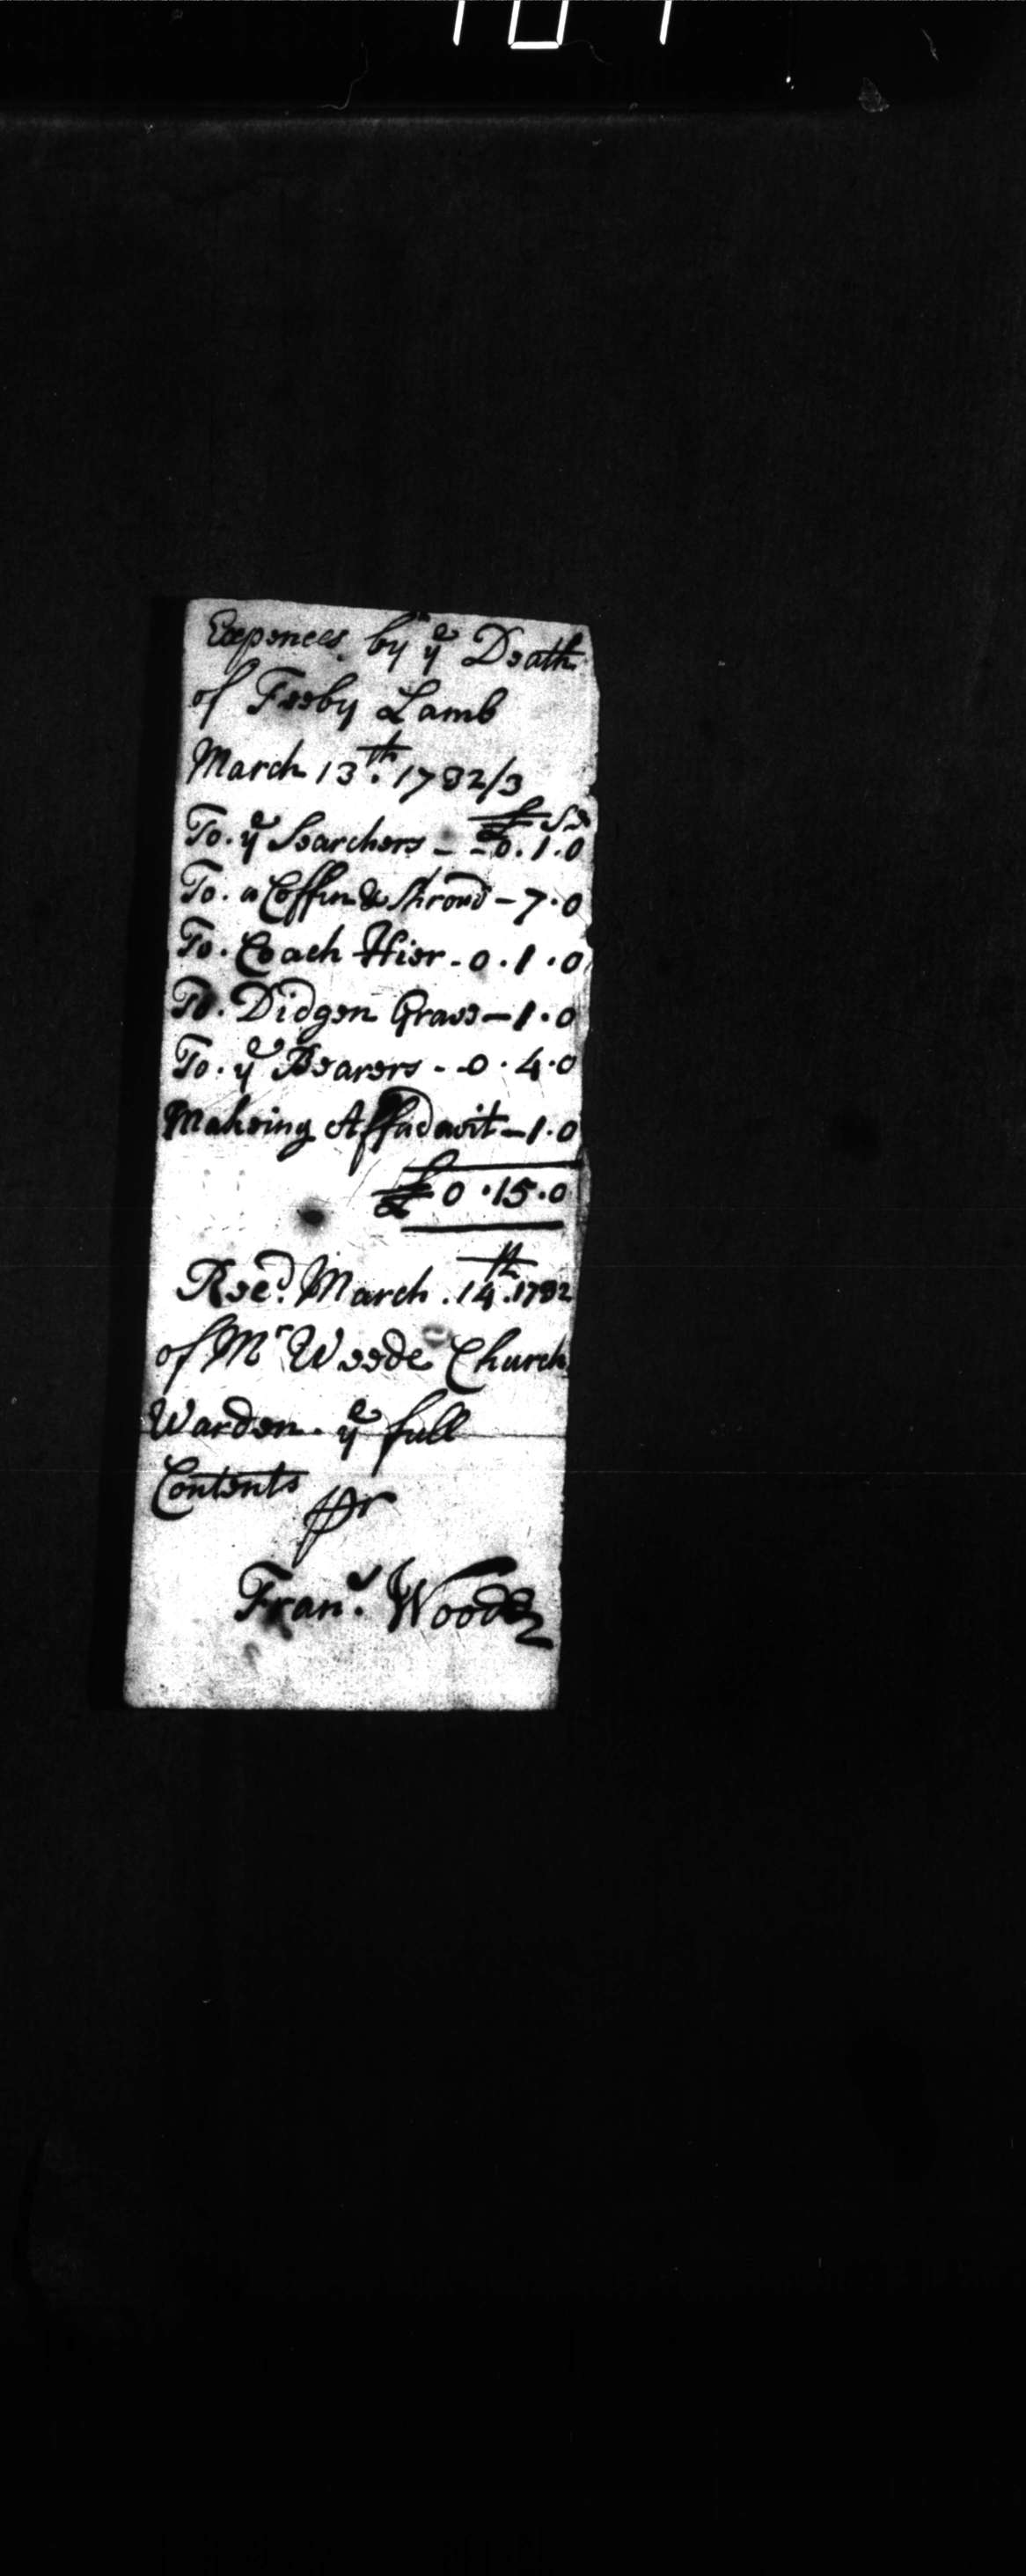 Expences by ye Death
of Feeby Lamb
March 13th. 1732/3
£ S D
To. ye Searchers - - 0. 1. 0
To. a Coffin & Shroud - 7. 0
To. Coach Hier - 0. 1. 0
To. Didgen Grave - 1. 0
To. ye Bearers - - 0. 4. 0
Makeing Affadavit - 1. 0
£ 0. 15. 0
Recd. March. 14th. 1732
of Mr Weede Church
Warden. ye full
Contents
pr
Frans. Woods